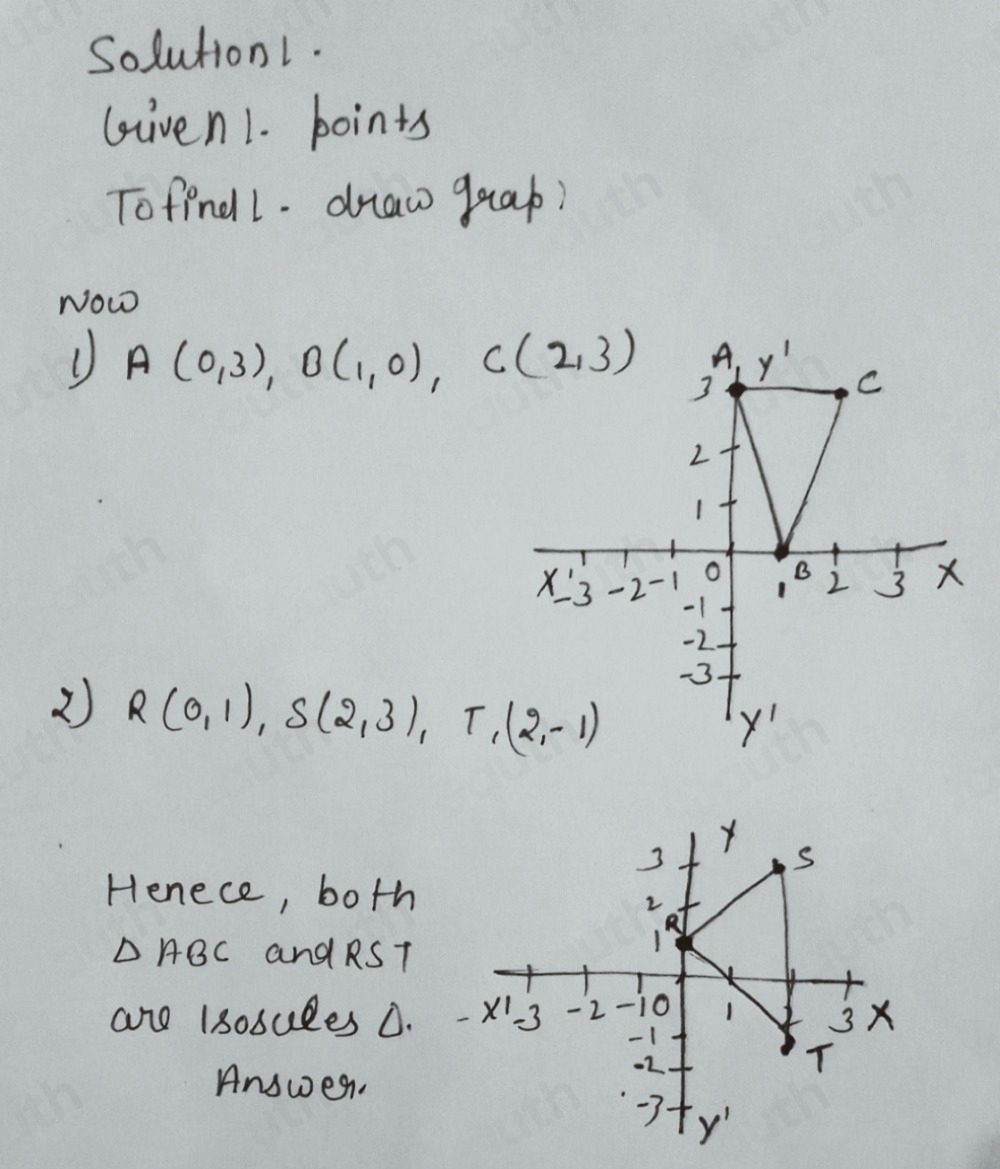 Solution:-
Given:- points
To find:- draw grap:
Now
1) A (0,3), B(1,0), C(2,3)
A, Y'
3
C
2
1
X' -3 -2 -1 0 1 B 2 3 X
-1
-2
-3
Y'
2) R (0,1), S(2,3), T,(2,-1)
Y
3
S
2
R
1
X' -3 -2 -1 0 1 3 X
-1
T
-2
-3
Y'
Henece, both
Δ ABC and RST
are Isosules Δ.
Answer.